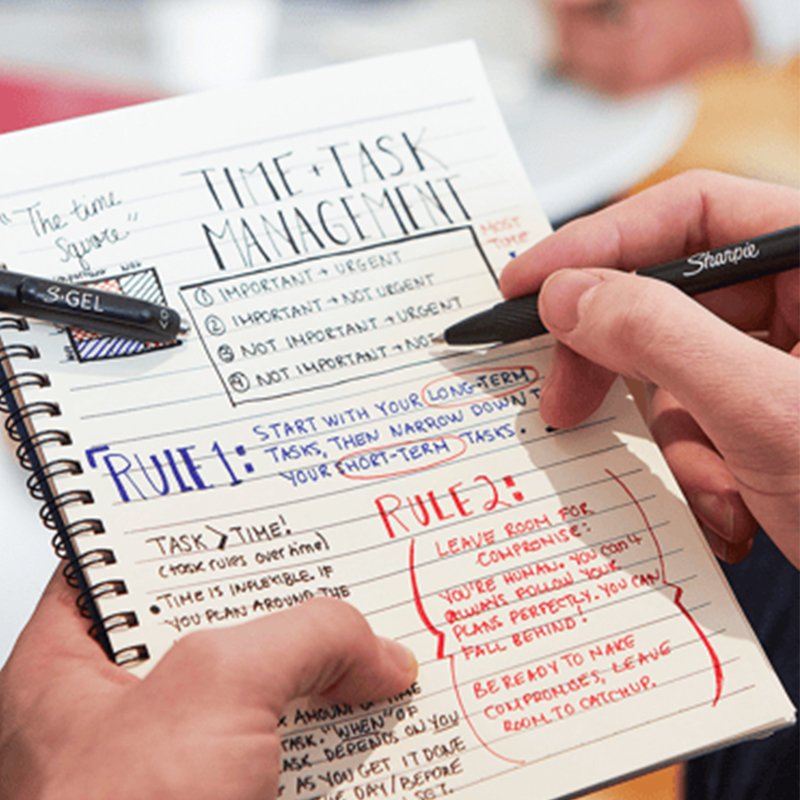 TIME + TASK
MANAGEMENT
"The time
Square"
MOST
TIME
① IMPORTANT + URGENT
② IMPORTANT + NOT URGENT
③ NOT IMPORTANT + URGENT
④ NOT IMPORTANT + NOT
S·GEL
Sharpie
RULE 1:
START WITH YOUR LONG-TERM
TASKS, THEN NARROW DOWN T
YOUR SHORT-TERM TASKS.
RULE 2:
LEAVE ROOM FOR
COMPROMISE:
YOU'RE HUMAN. YOU CAN'T
ALWAYS FOLLOW YOUR
PLANS PERFECTLY. YOU CAN
FALL BEHIND!
BE READY TO MAKE
COMPROMISES, LEAVE
ROOM TO CATCHUP.
TASK > TIME!
(task rules over time)
• TIME IS INFLEXIBLE. IF
YOU PLAN AROUND THE
AMOUNT OF TIME
TASK. "WHEN" OF
ASK DEPENDS ON YOU
AS YOU GET IT DONE
THE DAY/BEFORE
SET.